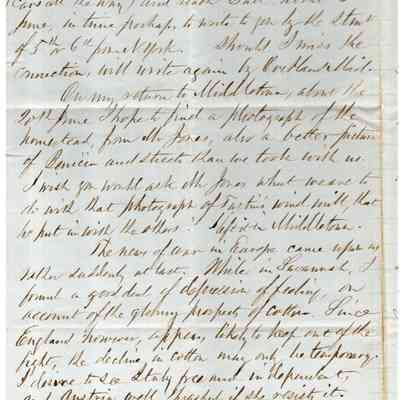 June, in time perhaps to write to you by the Steamer
of 5th or 6th from N York. Should I miss the
connection, will write again by Overland Mail.
On my return to Middletown, about the
20th June I hope to find a photograph of the
homestead, from Mr Jones, also a better picture
of Benicia and streets than we took with us.
I wish you would ask Mr Jones what we are to
do with that photograph of wind mill that
he put in with the others! Middletown.
The news of war in Europe came upon us
rather suddenly at last. While in Savannah, I
found a good deal of depression of feeling, on
account of the gloomy prospects of cotton. Since
England however, appears likely to keep out of the
fight, the decline in cotton may only be temporary.
I desire to see Italy free and independent,
and Austria well thrashed if she resist it.